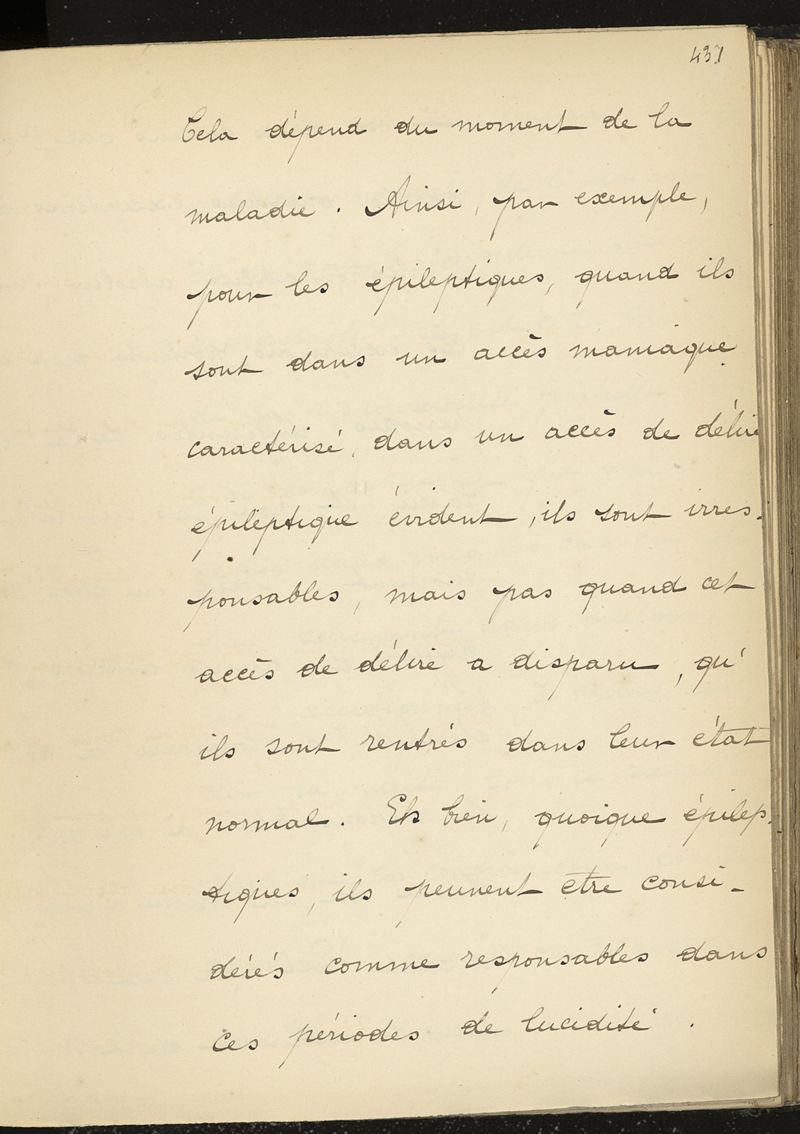 431
Cela dépend du moment de la
maladie. Ainsi, par exemple,
pour les épileptiques, quand ils
sont dans un accès maniaque
caractérisé, dans un accès de délire
épileptique évident, ils sont irres-
ponsables, mais pas quand cet
accès de délire a disparu, qu'
ils sont rentrés dans leur état
normal. Eh bien, quoique épilep-
tiques, ils peuvent etre consi-
dérés comme responsables dans
ces périodes de lucidité.